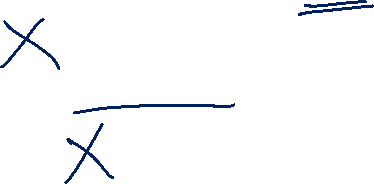 X =
X